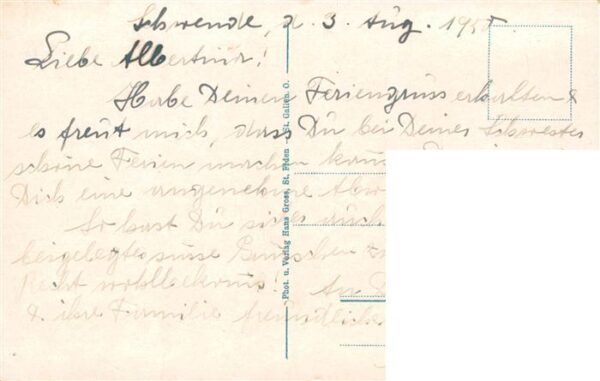 Schwende, d. 3. Aug. 195
Liebe Albertina!
Habe Deinen Feriengruss erhalten &
es freut mich, dass Du bei Deiner Schwester
schöne Ferien machen kannst.
Dich eine angenehme
So hast Du
beigelegtes süsse
Recht wohlbekoms! An
& ihre Familie freundliche
Phot. u. Verlag Hans Gross, St. Fiden - St. Gallen O.